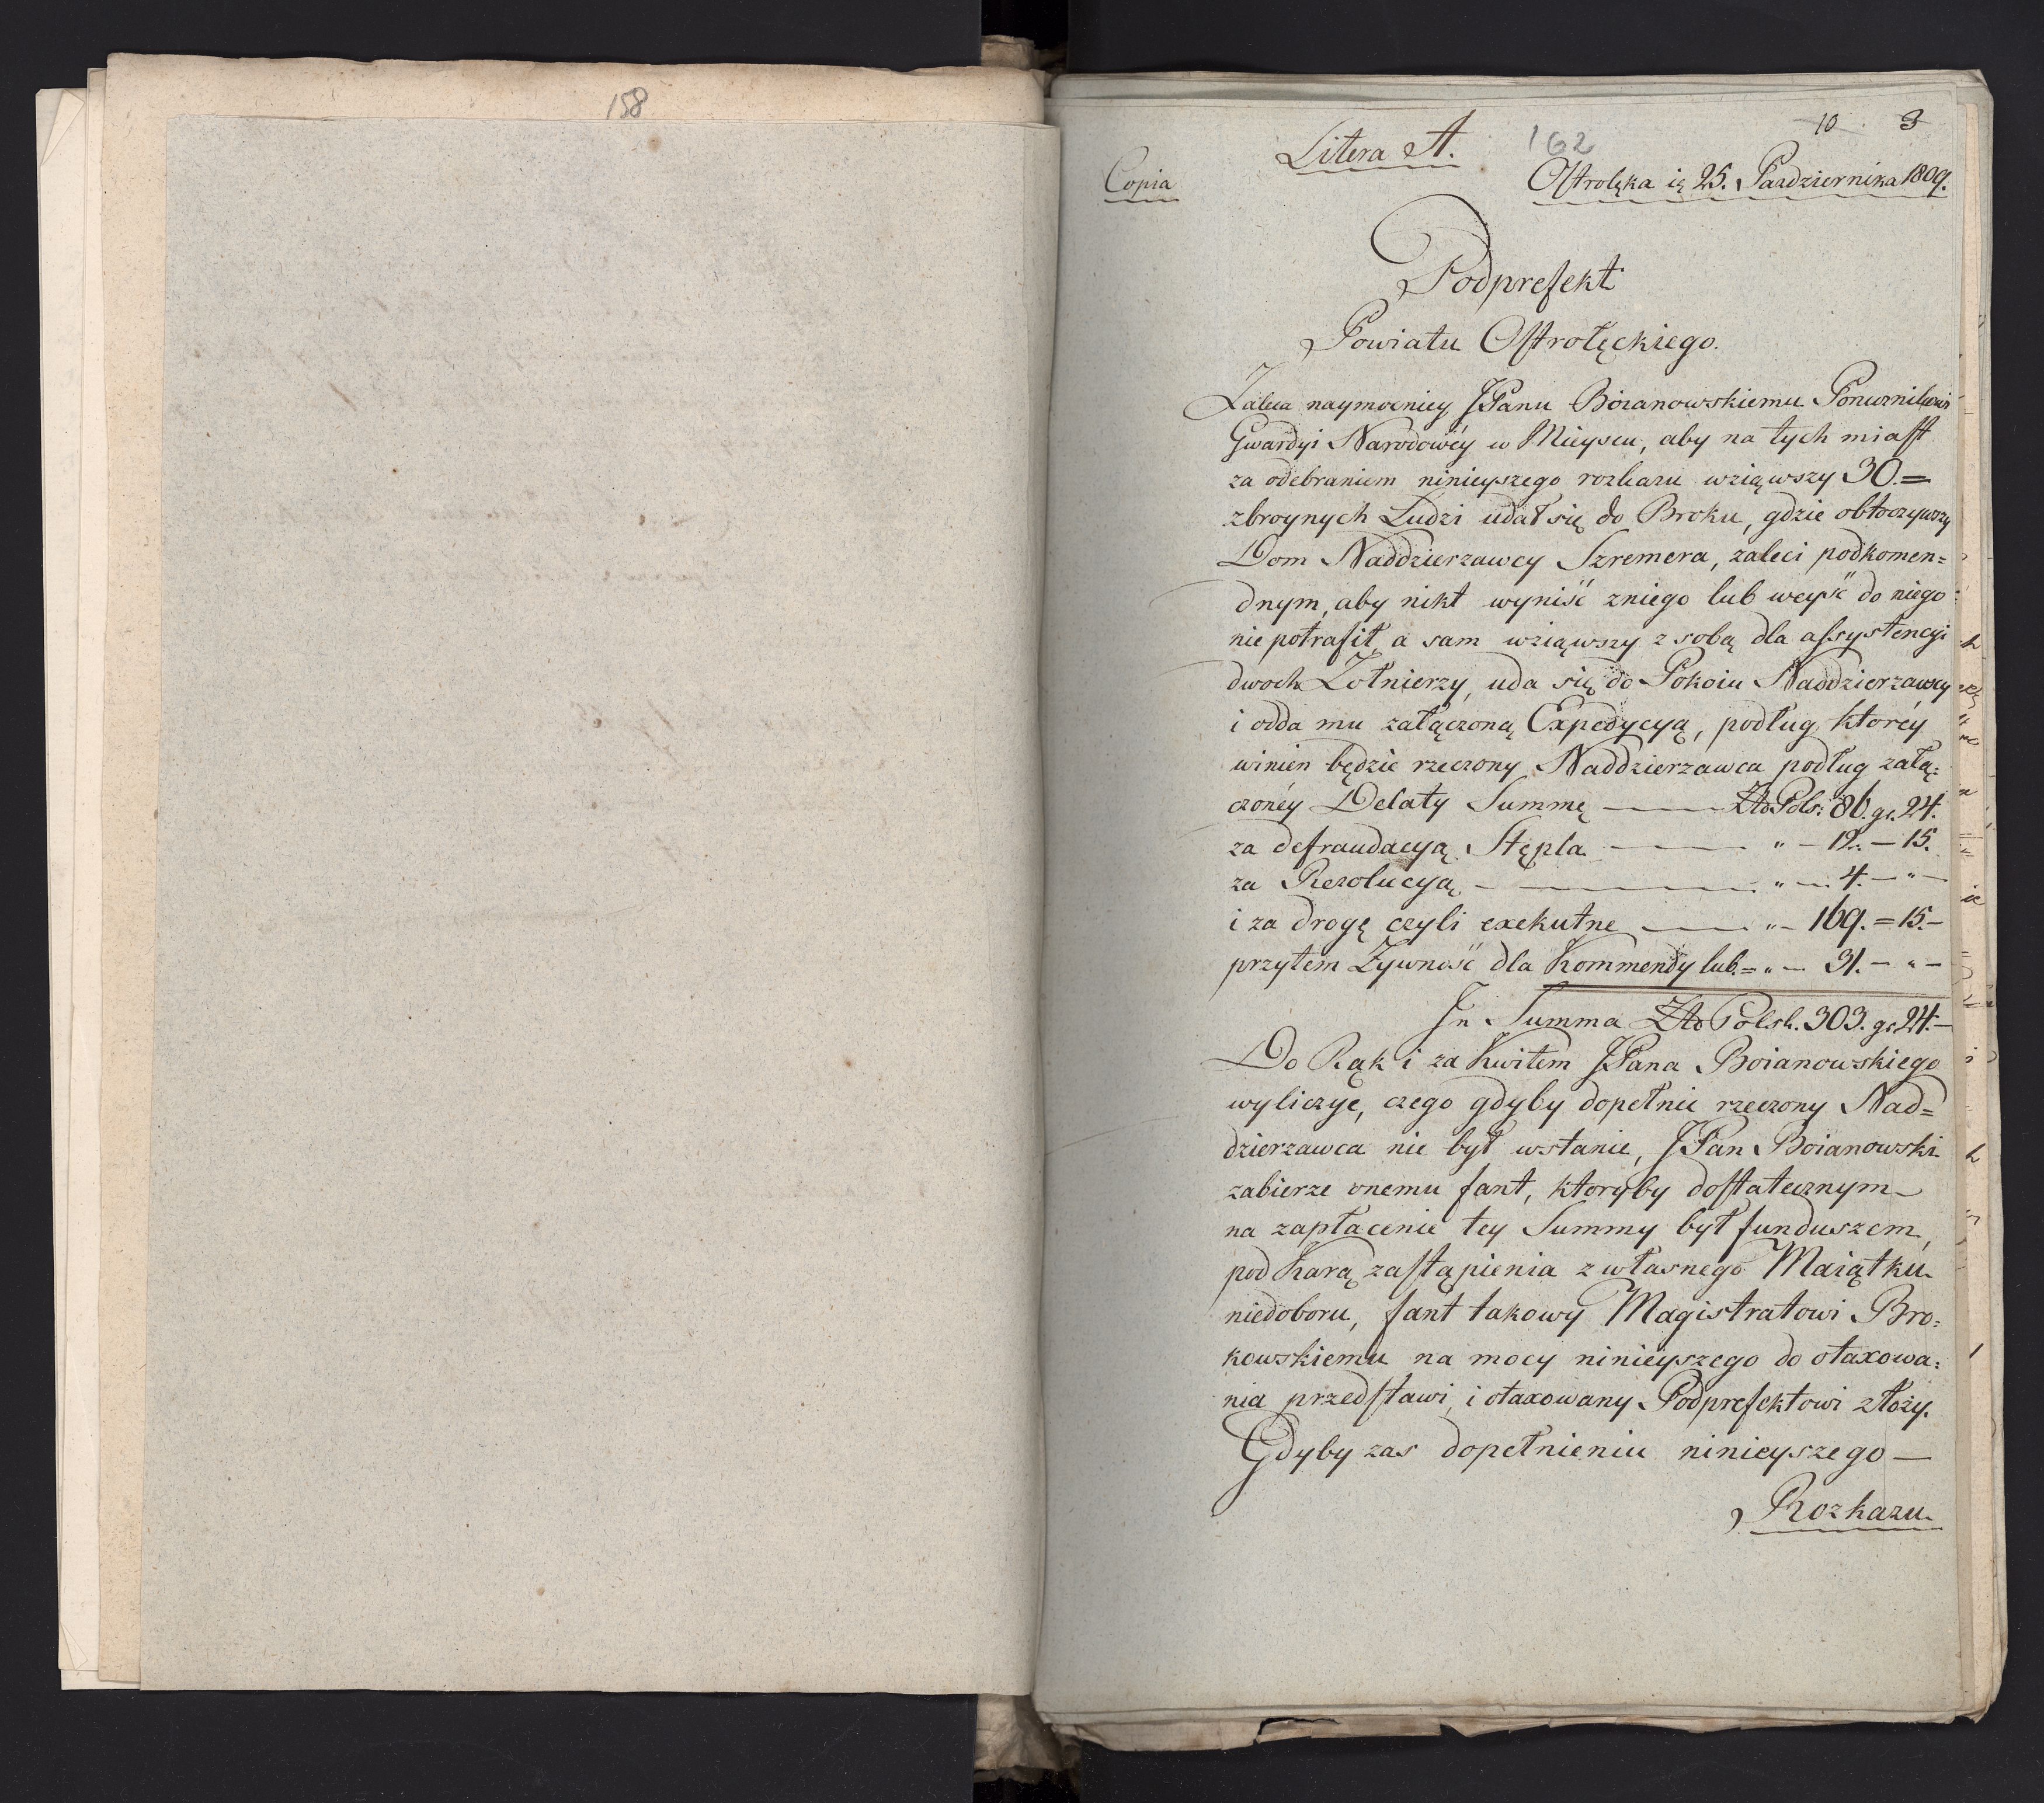 158
10 3
Litera A. 162
Copia
Ostrolęka ię 25. Pazdziernika 1809.
Podprefekt
Powiatu Ostrołęckiego.
Zaleca naymocniey JPanu Boianowskiemu Porucznikowi
Gwardyi Narodowéy w Mieyscu, aby na tych miast
za odebraniem ninieyszego rozkazu wziąwszy 30.=
zbroynych Ludzi udał się do Broku, gdzie obtoczywszy
Dom Naddzierzawcy Szremera, zaleci podkomen=
dnym, aby nikt wyniść zniego lub weyść do niego
nie potrafił, a sam wziąwszy z sobą dla assystencyi
dwoch Zołnierzy, uda się do Pokoiu Naddzierzawcy
i odda mu załączoną Expedycyą, podług ktoréy
winien będzie rzeczony Naddzierzawca podług załą=
czonéy Delaty Summę — Zło Pols: 86. gr. 24.
za defraudacyą Stępla — " — 12. — 15.
za Rezolucyą — — " — 4. — " —
i za drogę czyli exekutne — " — 169. = 15. —
przytem Zywność dla Kommendy lub = " — 31. — " —
In Summa Zło Polsk. 303. gr 24. —
Do Rąk i za Kwitem JPana Boianowskiego
wyliczyc, czego gdyby dopełnic rzeczony Nad=
dzierzawca nie był wstanie, JPan Boianowski
zabierze onemu fant, ktoryby dostatecznym
na zapłacenie tey Summy był funduszem,
pod Karą zastąpienia z własnego Maiątku
niedoboru, fant takowy Magistratowi Bro=
kowskiemu na mocy ninieyszego do otaxowa=
nia przedstawi, i otaxowany Podprefektowi złoży.
Gdyby zas dopełnieniu ninieyszego —
Rozkazu